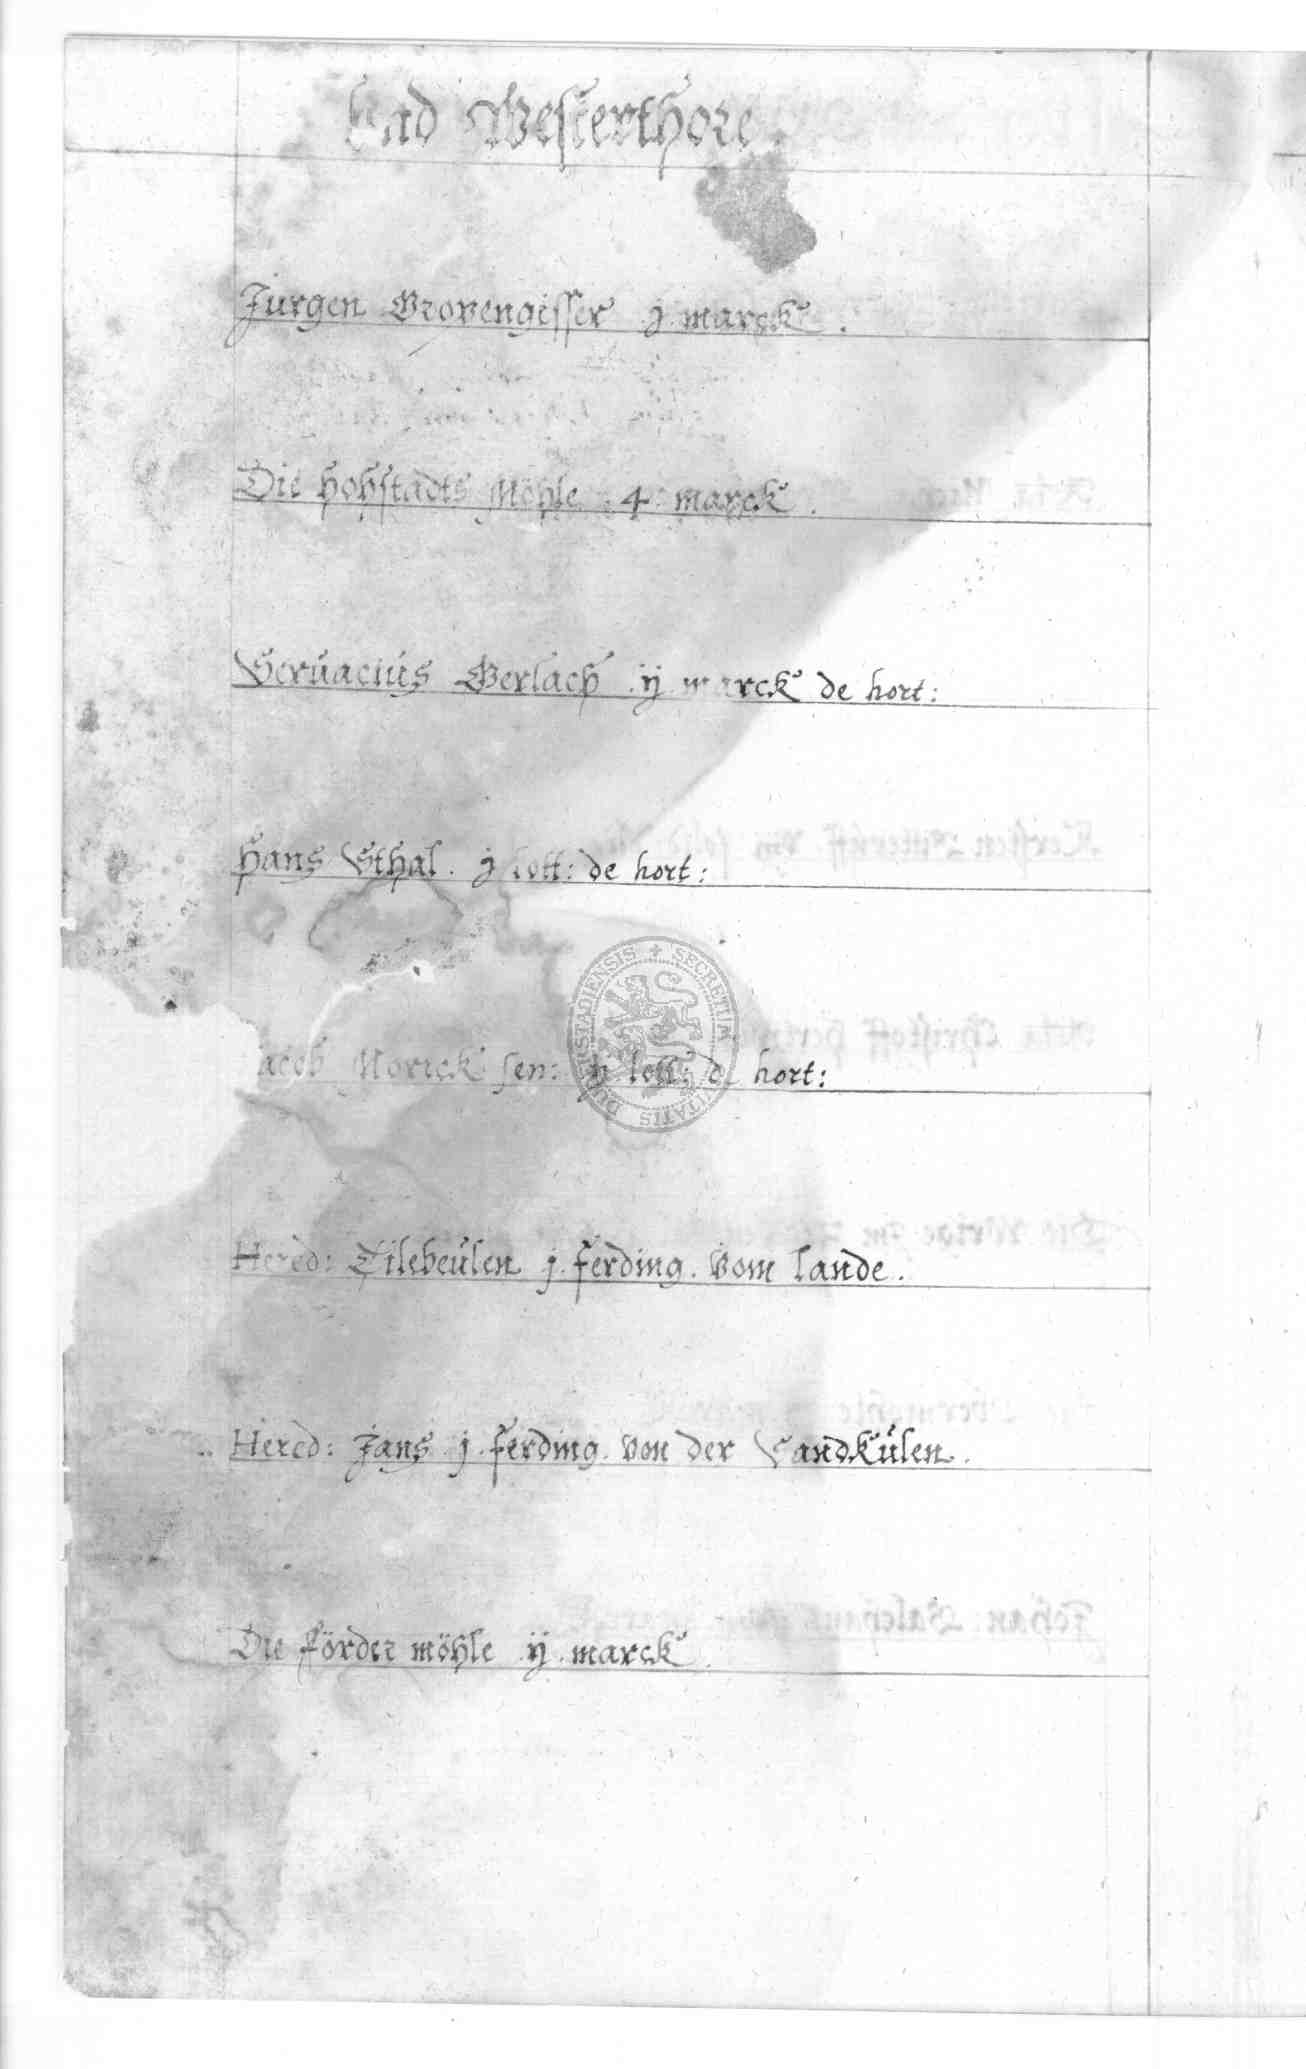 Bad Westerthore.
Jurgen Gropengisser j marck.
Die hohstadts Möhle 4 marck.
Servacius Gerlach ij marck de hort:
Hans Sthal. j lott: de hort:
Jacob Morick sen: lott: de hort:
Hered: Tilebeülen j. ferding. vom lande.
Hered: Jans j. ferding. von der Sandkülen.
Die förder möhle ij marck.
SECRETUM CIVITATIS DUDERSTADIENSIS